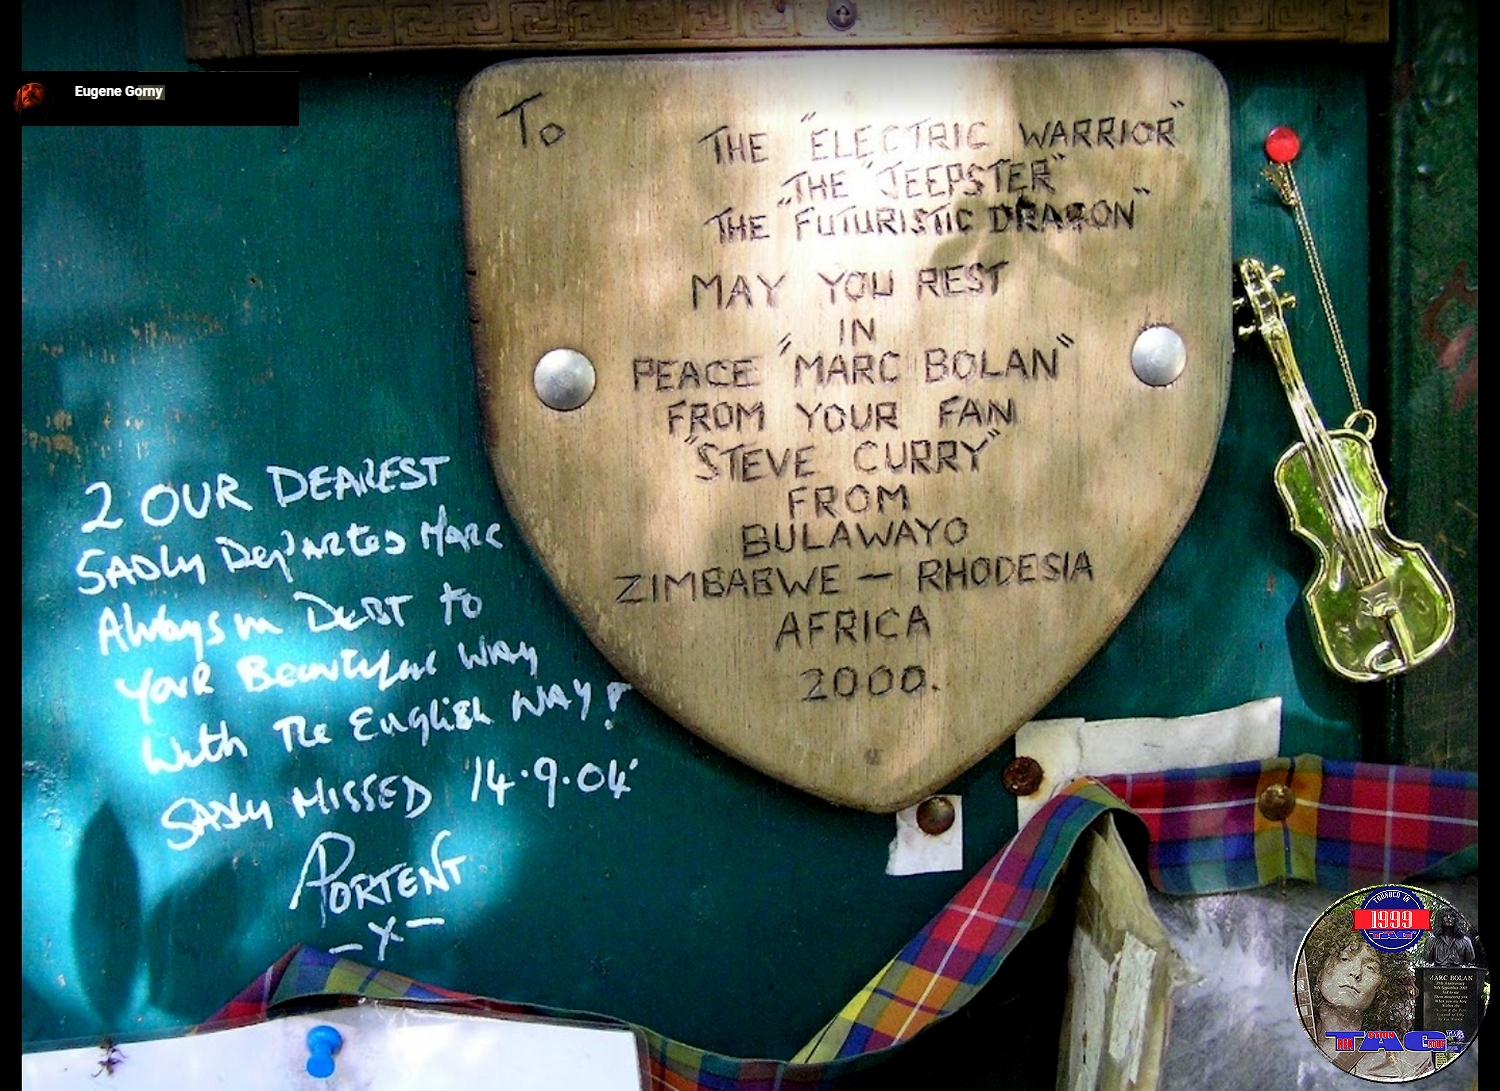 Eugene Gorny
To
THE "ELECTRIC WARRIOR"
THE "JEEPSTER"
THE "FUTURISTIC DRAGON"
MAY YOU REST
IN
PEACE "MARC BOLAN"
FROM YOUR FAN
"STEVE CURRY"
FROM
BULAWAYO
ZIMBABWE — RHODESIA
AFRICA
2000.
2 OUR DEAREST
SADLY DEPARTED MARC
Always in DEBT to
YOUR Beautiful WAy
With The English WAY!
SADLY MISSED '14.9.04'
PORTENT
-X-
FOUNDED IN
1999
TAG
MARC BOLAN
TAG